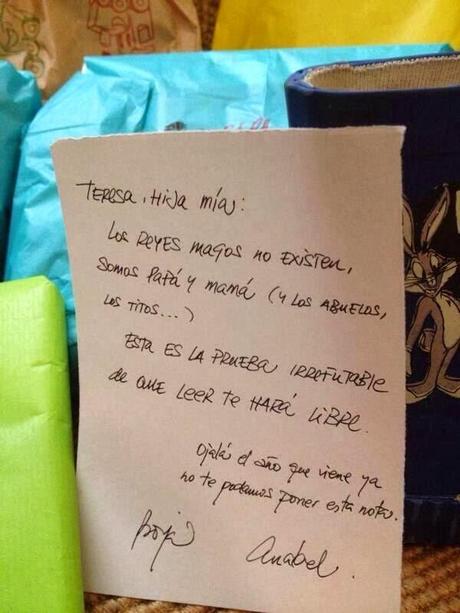 Teresa, Hija mía:
Los Reyes Magos no existen,
somos Papá y mamá (y los abuelos,
los titos...)
Esta es la prueba irrefutable
de que leer te hará libre.
Ojalá el año que viene ya
no te podamos poner esta nota.
Borja Anabel.